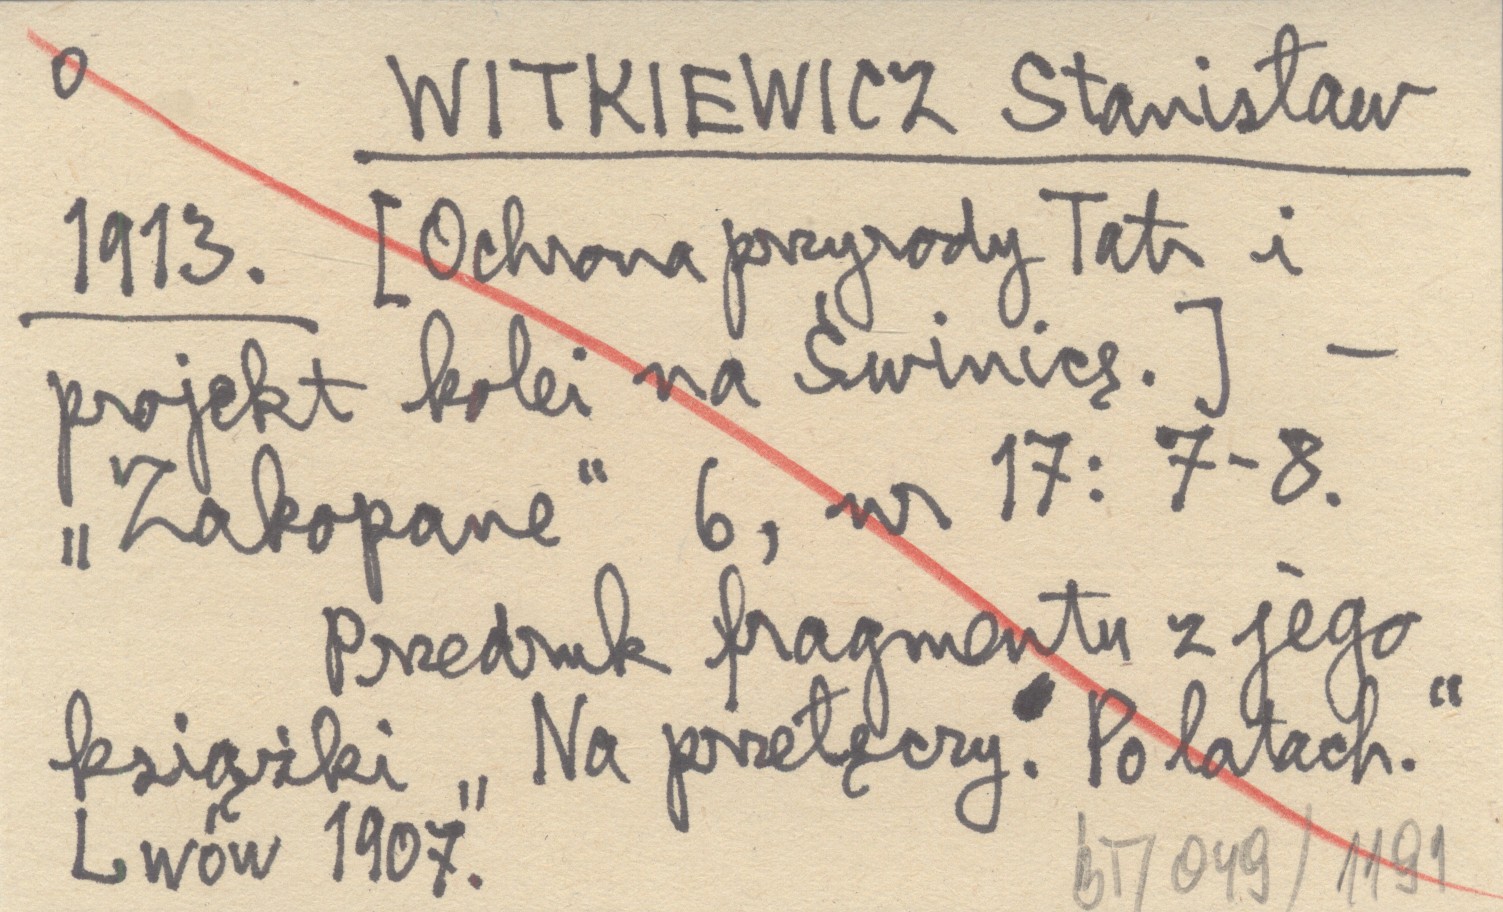 o WITKIEWICZ Stanisław
1913. [Ochrona przyrody Tatr i
projekt kolei na Świnicę.] –
„Zakopane“ 6, nr 17: 7-8.
Przedruk fragmentu z jego
książki „Na przełęczy. Po latach.“
Lwów 1907.
BT/049/1191